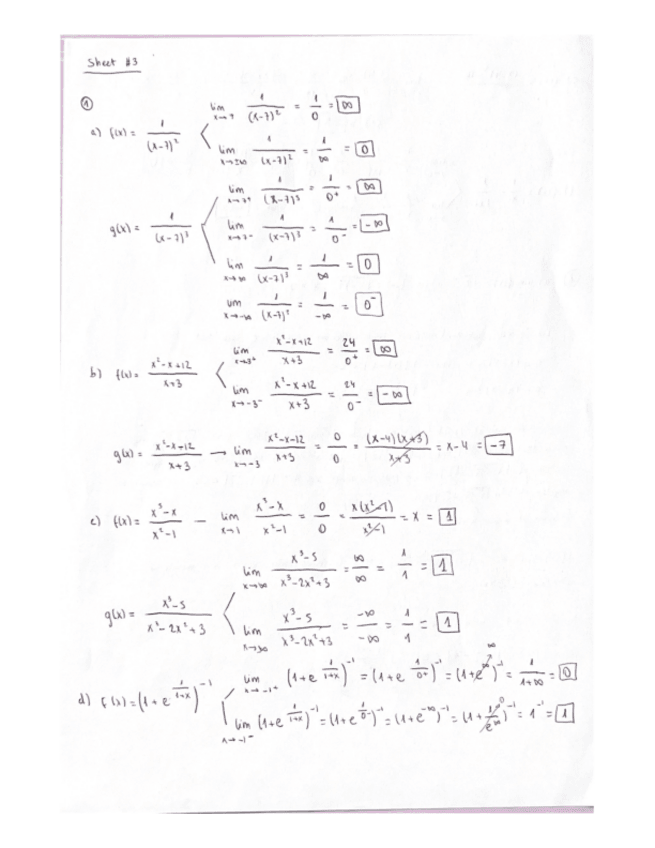 Sheet #3
①
a) f(x) = 1/(x-7)²
lim x→7 1/(x-7)² = 1/0 = ∞
lim x→±∞ 1/(x-7)² = 1/∞ = 0
g(x) = 1/(x-7)³
lim x→7⁺ 1/(x-7)³ = 1/0⁺ = ∞
lim x→7⁻ 1/(x-7)³ = 1/0⁻ = -∞
lim x→∞ 1/(x-7)³ = 1/∞ = 0
lim x→-∞ 1/(x-7)³ = 1/-∞ = 0⁻
b) f(x) = x²-x+12/x+3
lim x→-3⁺ x²-x+12/x+3 = 24/0⁺ = ∞
lim x→-3⁻ x²-x+12/x+3 = 24/0⁻ = -∞
g(x) = x²-x-12/x+3 → lim x→-3 x²-x-12/x+3 = 0/0 = (x-4)(x+3)/x+3 = x-4 = -7
c) f(x) = x³-x/x²-1 — lim x→1 x³-x/x²-1 = 0/0 = x(x²-1)/x²-1 = x = 1
g(x) = x³-5/x³-2x²+3
lim x→∞ x³-5/x³-2x²+3 = ∞/∞ = 1/1 = 1
lim x³-5/x³-2x²+3 = -∞/-∞ = 1/1 = 1
d) f(x) = (1+e^(1/1+x))⁻¹
lim x→-1⁺ (1+e^(1/1+x))⁻¹ = (1+e^(1/0⁺))⁻¹ = (1+e^∞)⁻¹ = 1/1+∞ = 0
∞
lim x→-1⁻ (1+e^(1/1+x))⁻¹ = (1+e^(1/0⁻))⁻¹ = (1+e^-∞)⁻¹ = (1+1/e^∞)⁻¹ = 1⁻¹ = 1
0